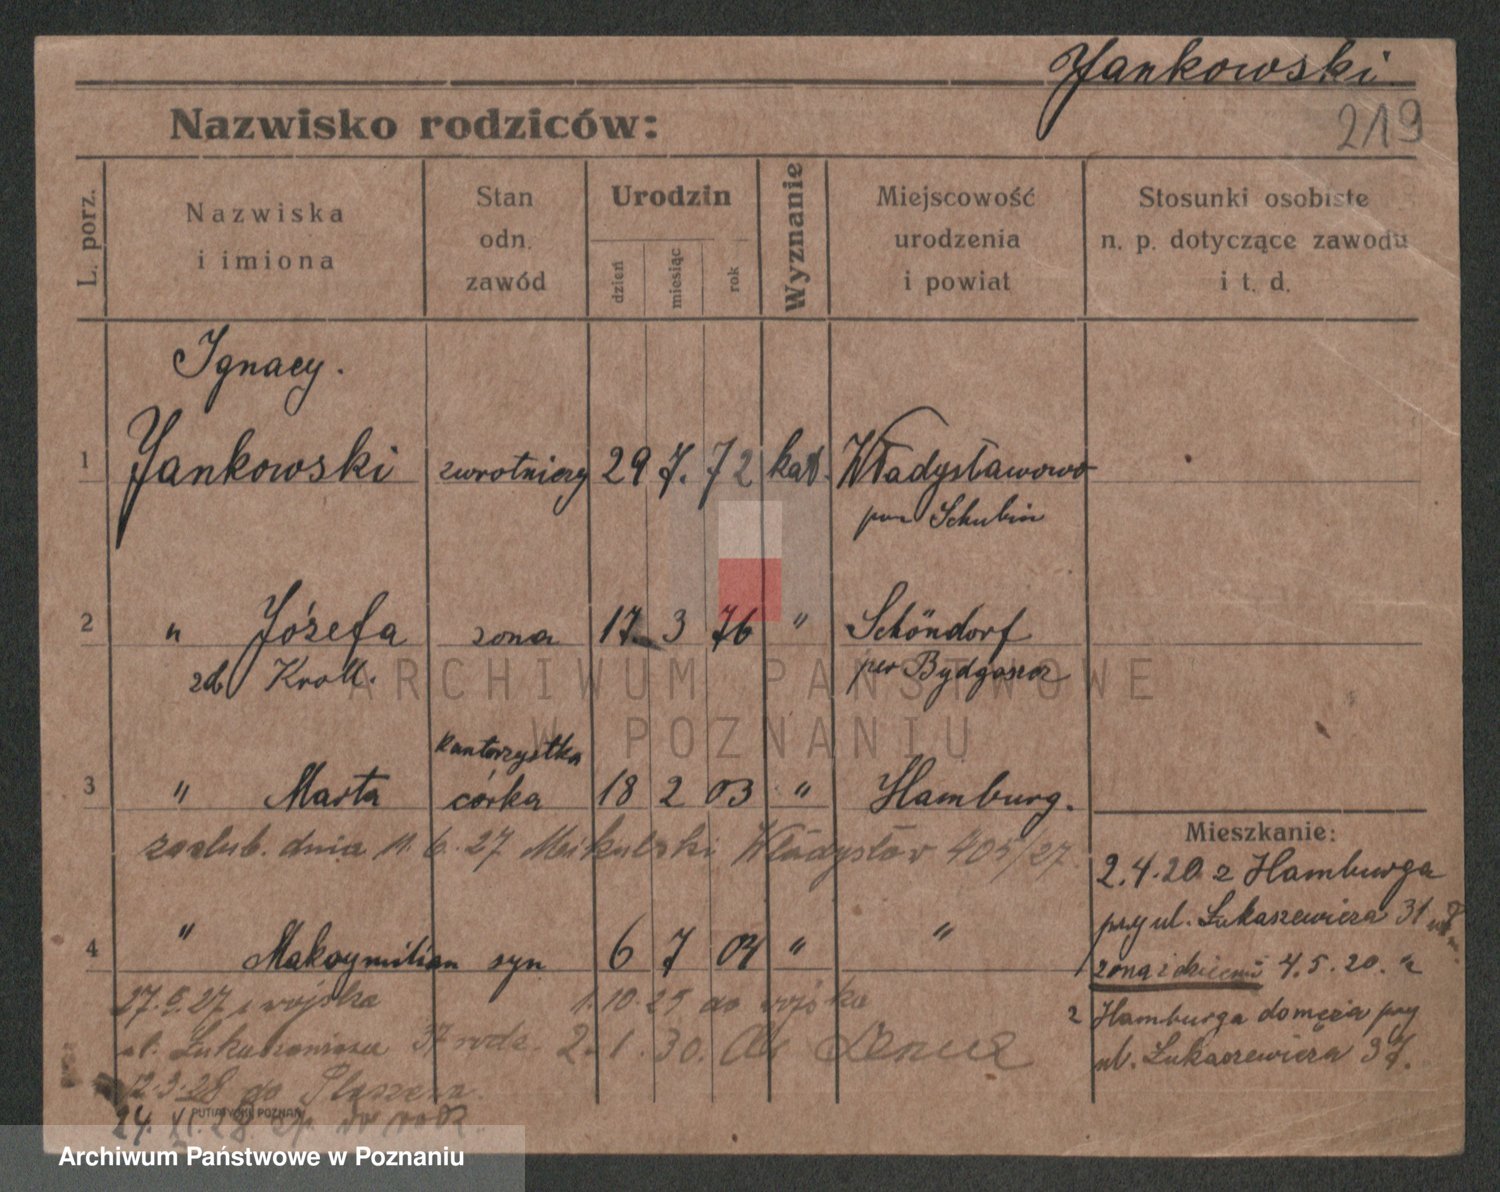 Yankowski
Nazwisko rodziców:
219
L. porz.
Nazwiska
i imiona
Stan
odn.
zawód
Urodzin
dzień
miesiąc
rok
Wyznanie
Miejscowość
urodzenia
i powiat
Stosunki osobiste
n. p. dotyczące zawodu
i t. d.
Ignacy.
1 Yankowski zwrotniczy 29 7. 72 kat. Władysławowo
pow Schubin
2 " Józefa żona 17. 3 76 " Schöndorf
zd. Kroll. pow Bydgoszcz
ARCHIWUM PAŃSTWOWE
W POZNANIU
kantorzystka
3 " Marta córka 18 2 03 " Hamburg.
zaslub. dnia 11. 6. 27 Mikulski Władysław 405/27.
4 " Maksymilian syn 6 7 04 " "
27.5.27 z wojska 1.10.25 do wojska
ul. Łukaszewicza 37 rodz. 2.1.30.
12.3.28 do
24. XI. 28.
Mieszkanie:
2.4.20 z Hamburga
przy ul. Łukaszewicza 31
żona i dziećmi 4.5.20. "
z Hamburga do męża przy
ul. Łukaszewicza 37.
PUTIATYCKI POZNAŃ
Archiwum Państwowe w Poznaniu